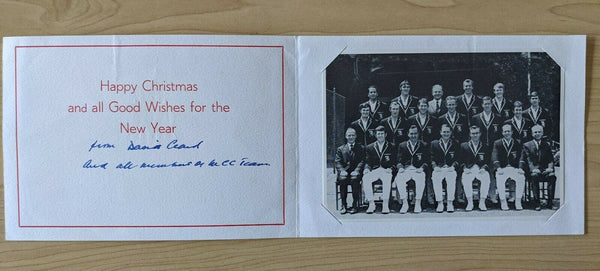 Happy Christmas
and all Good Wishes for the
New Year
from David
And all members of MCC Team